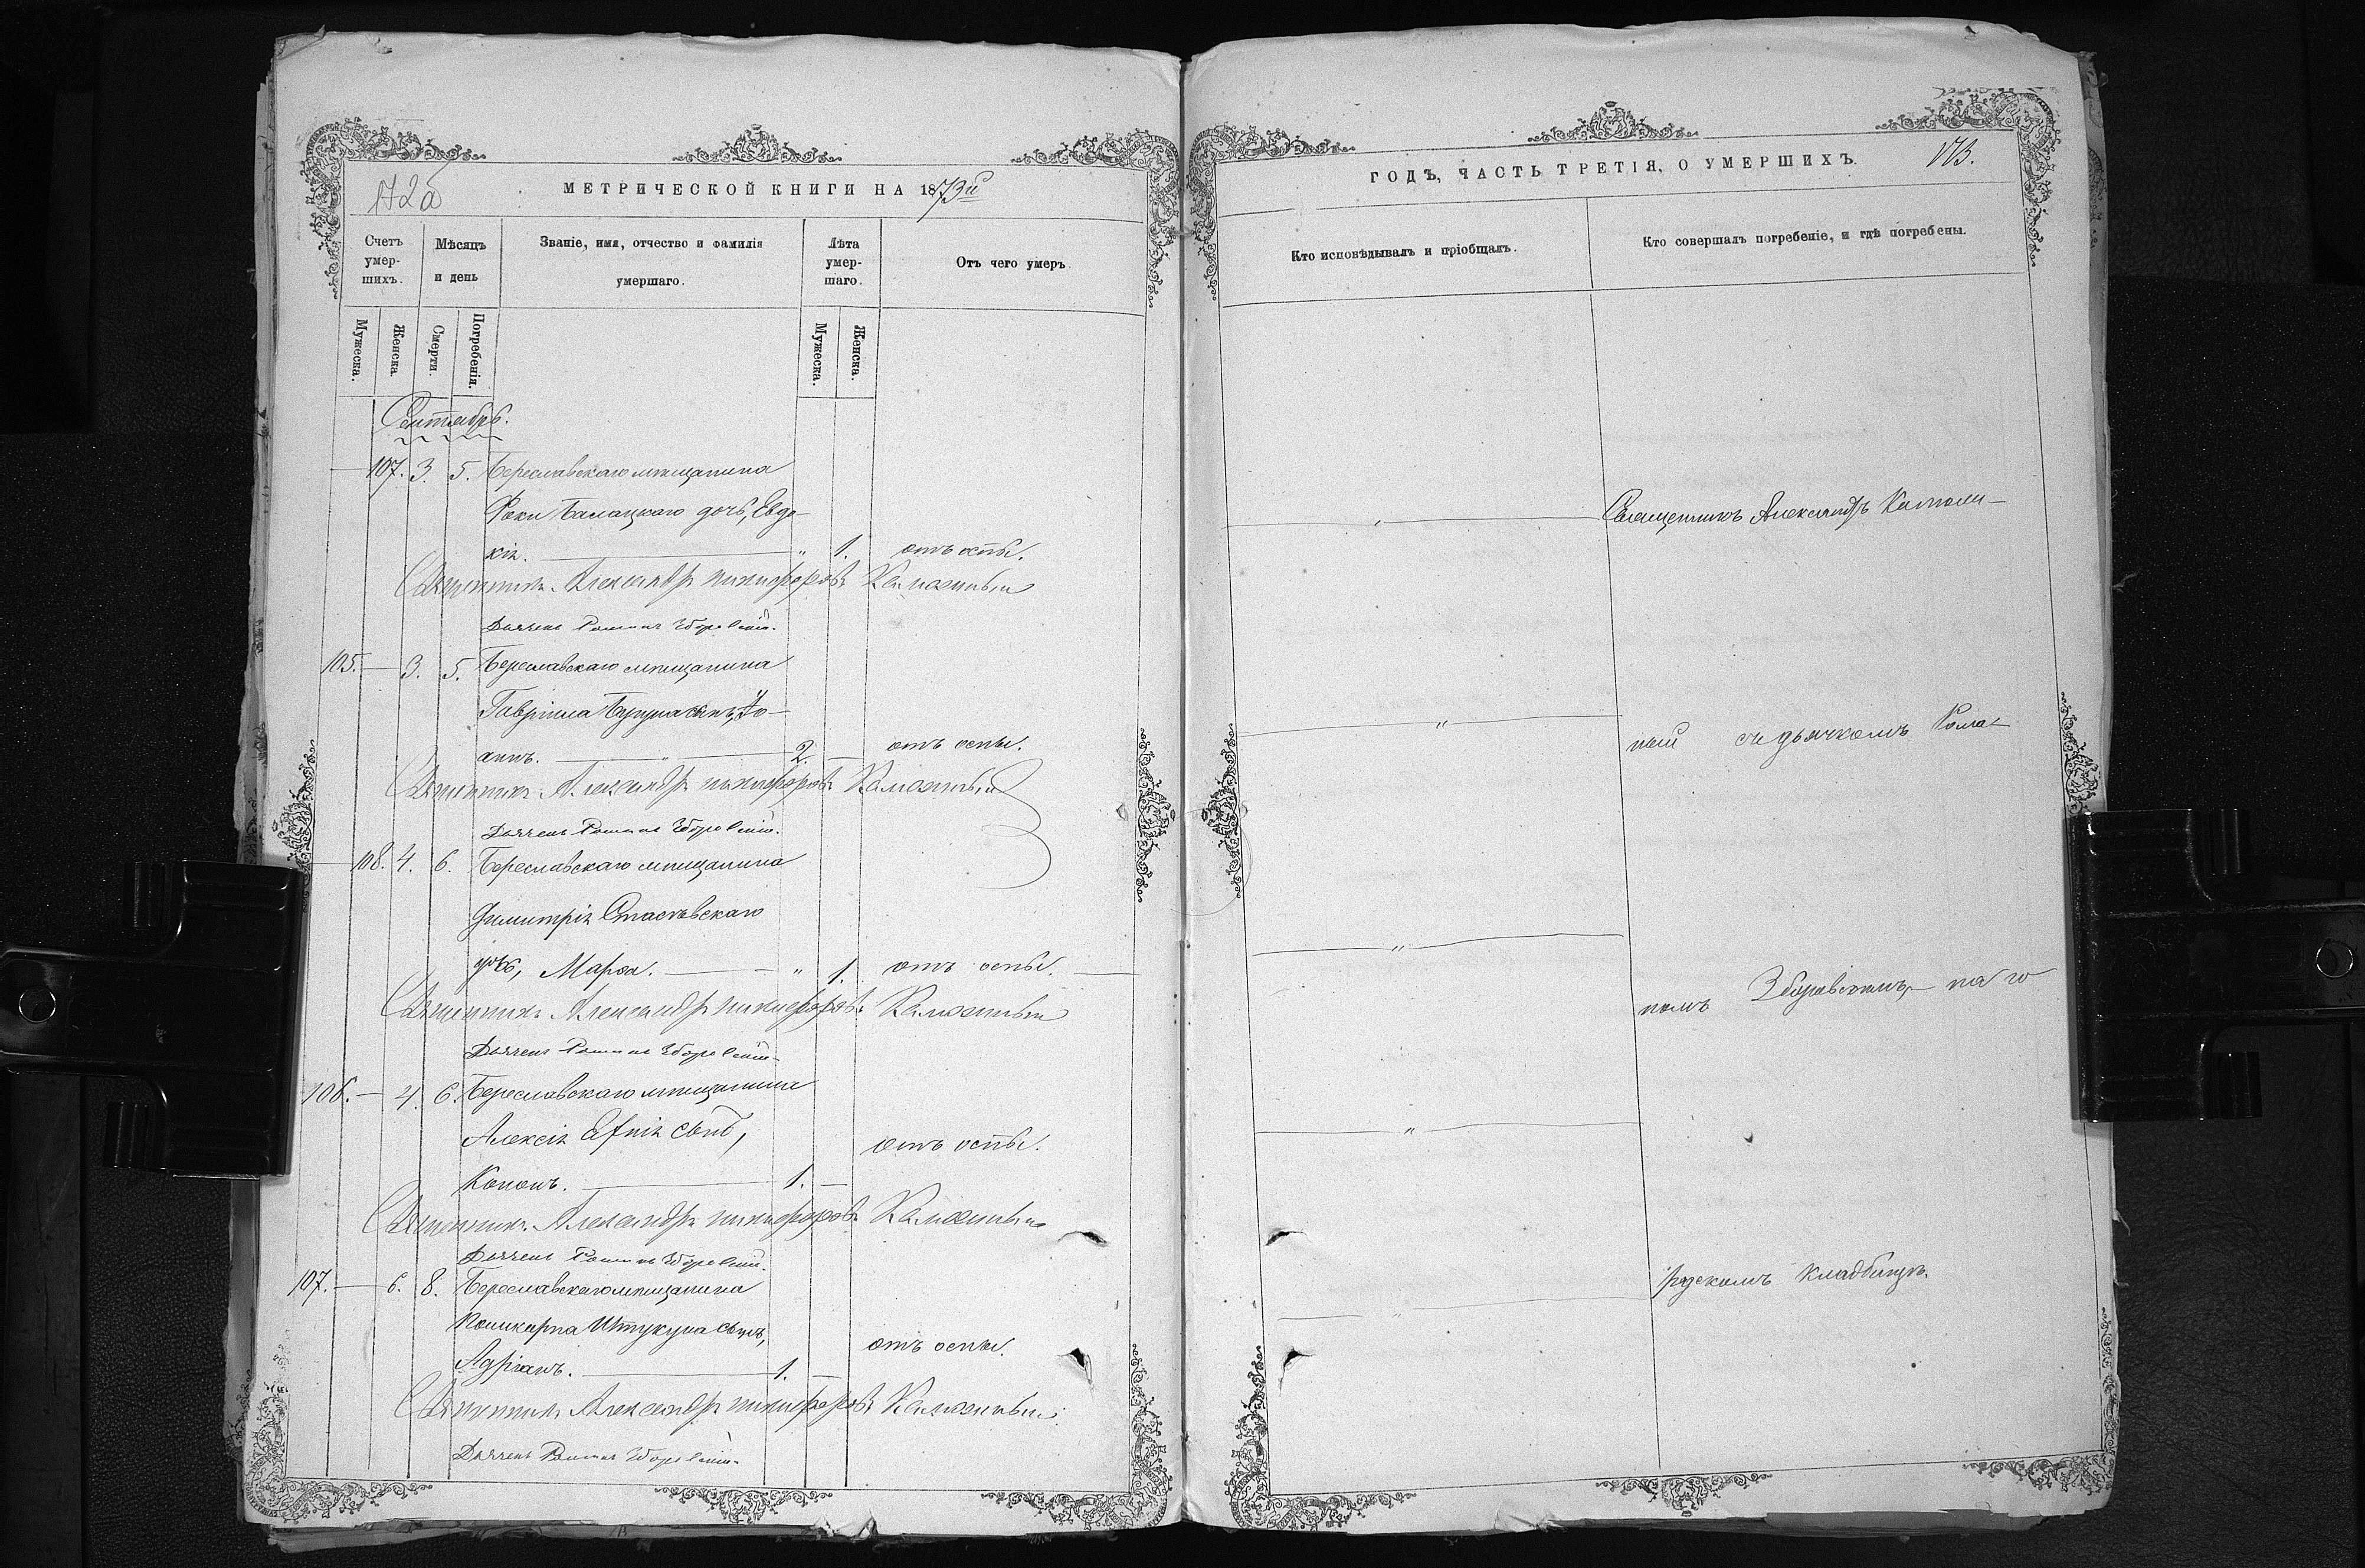 172 а
МЕТРИЧЕСКОЙ КНИГИ НА 1873й
Счетъ умер-шихъ.
Мѣсяцъ и день
Званіе, имя, отчество и фамилія умершаго.
Лѣта умер-шаго.
Отъ чего умеръ
Мужеска.
Женска
Смерти.
Погребенія.
Мужеска.
Женска.
Сентябрь.
107. 3. 5. Береславскаго мѣщанина
Фоки Балацкаго дочь, Евдо-
кія. " 1. отъ оспы.
Священникъ Александръ Никифоровъ
Дьячекъ Романъ Зборовскій.
105. 3. 5. Береславскаго мѣщанина
Гавріила сынъ, Іо-
аннъ. " 2. отъ оспы.
Священникъ Александръ Никифоровъ
Дьячекъ Романъ Зборовскій.
108. 4. 6. Береславскаго мѣщанина
Димитрія
дочь, Марѳа. " 1. отъ оспы.
Священникъ Александръ Никифоровъ
Дьячекъ Романъ Зборовскій.
106. 4. 6. Береславскаго мѣщанина
Алексія сынъ,
Кононъ. 1. отъ оспы.
Священникъ Александръ Никифоровъ
Дьячекъ Романъ Зборовскій.
107. 6. 8. Береславскаго мѣщанина
Поликарпа Штукуна сынъ,
Адріанъ. 1. отъ оспы.
Священникъ Александръ Никифоровъ
Дьячекъ Романъ Зборовскій.
ГОДЪ, ЧАСТЬ ТРЕТІЯ, О УМЕРШИХЪ.
173.
Кто исповѣдывалъ и пріобщалъ.
Кто совершалъ погребеніе, и гдѣ погребены.
Священникъ Александръ
" ный съ дьячкомъ Рома-
" номъ Зборовскимъ, на го-
"
" родскомъ кладбищѣ.